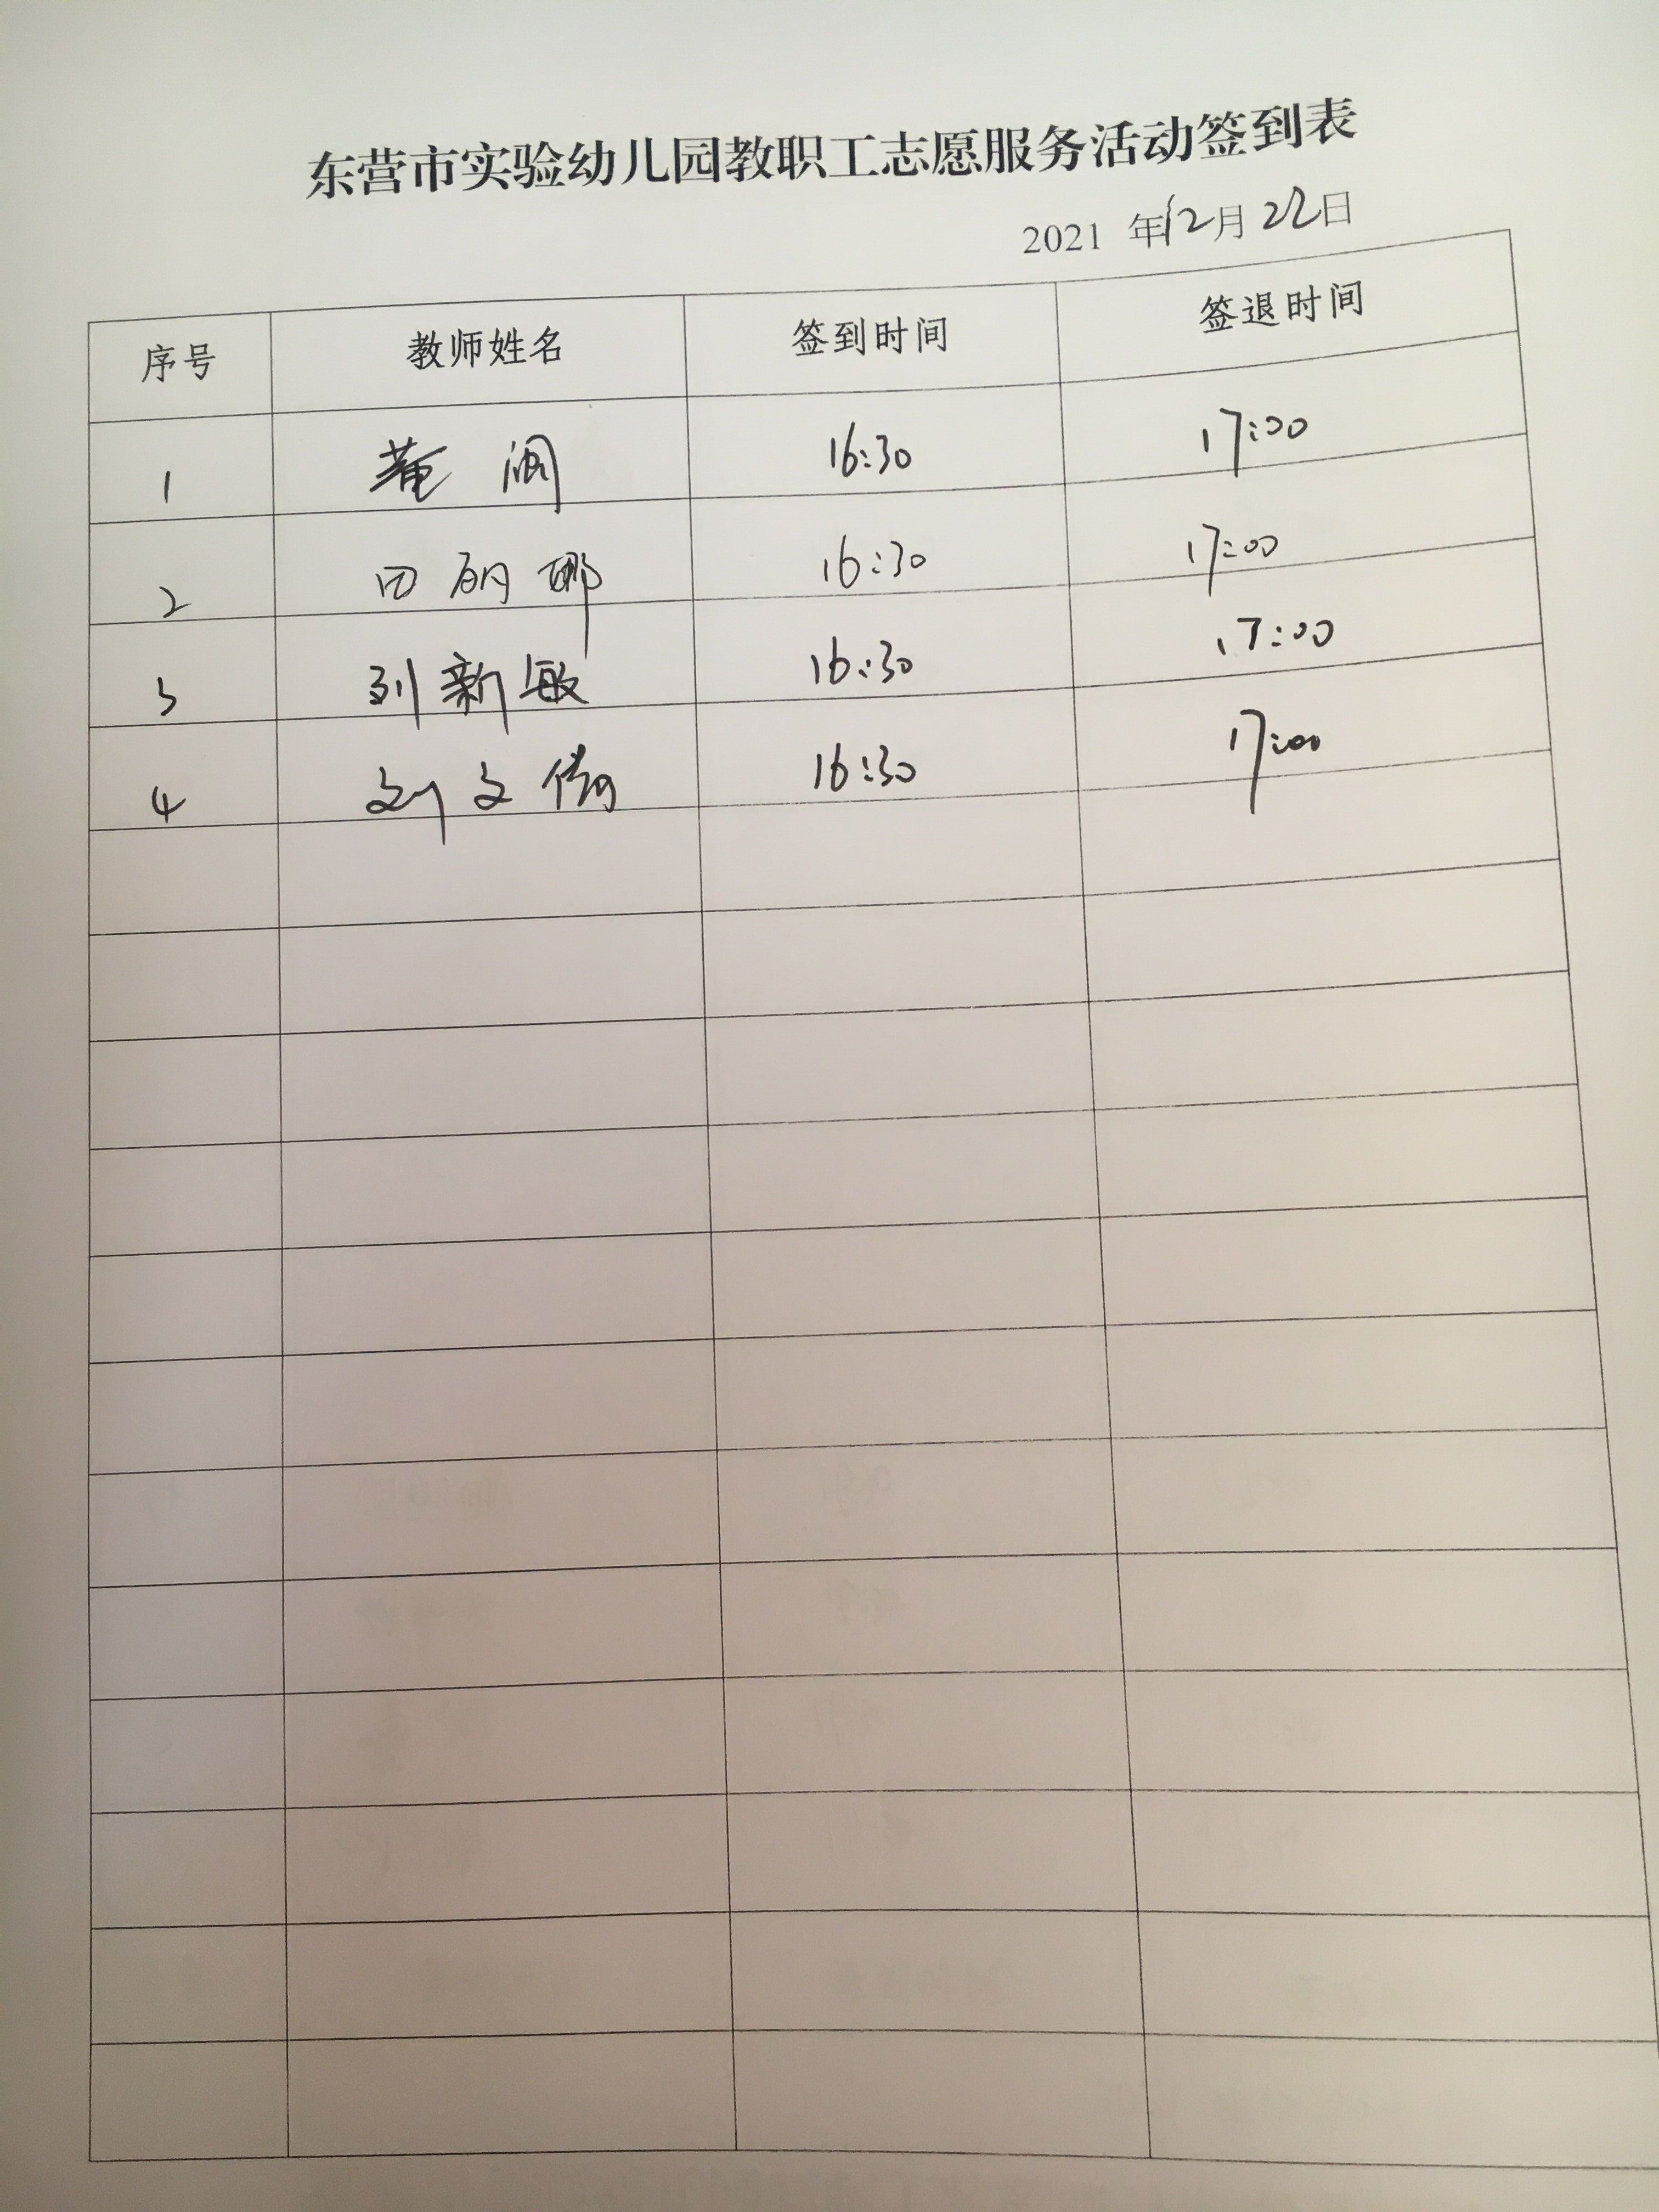 东营市实验幼儿园教职工志愿服务活动签到表
2021 年12月22日
序号 教师姓名 签到时间 签退时间
1 16:30 17:00
2 田丽娜 16:30 17:00
3 刘新敏 16:30 17:00
4 刘文倩 16:30 17:00